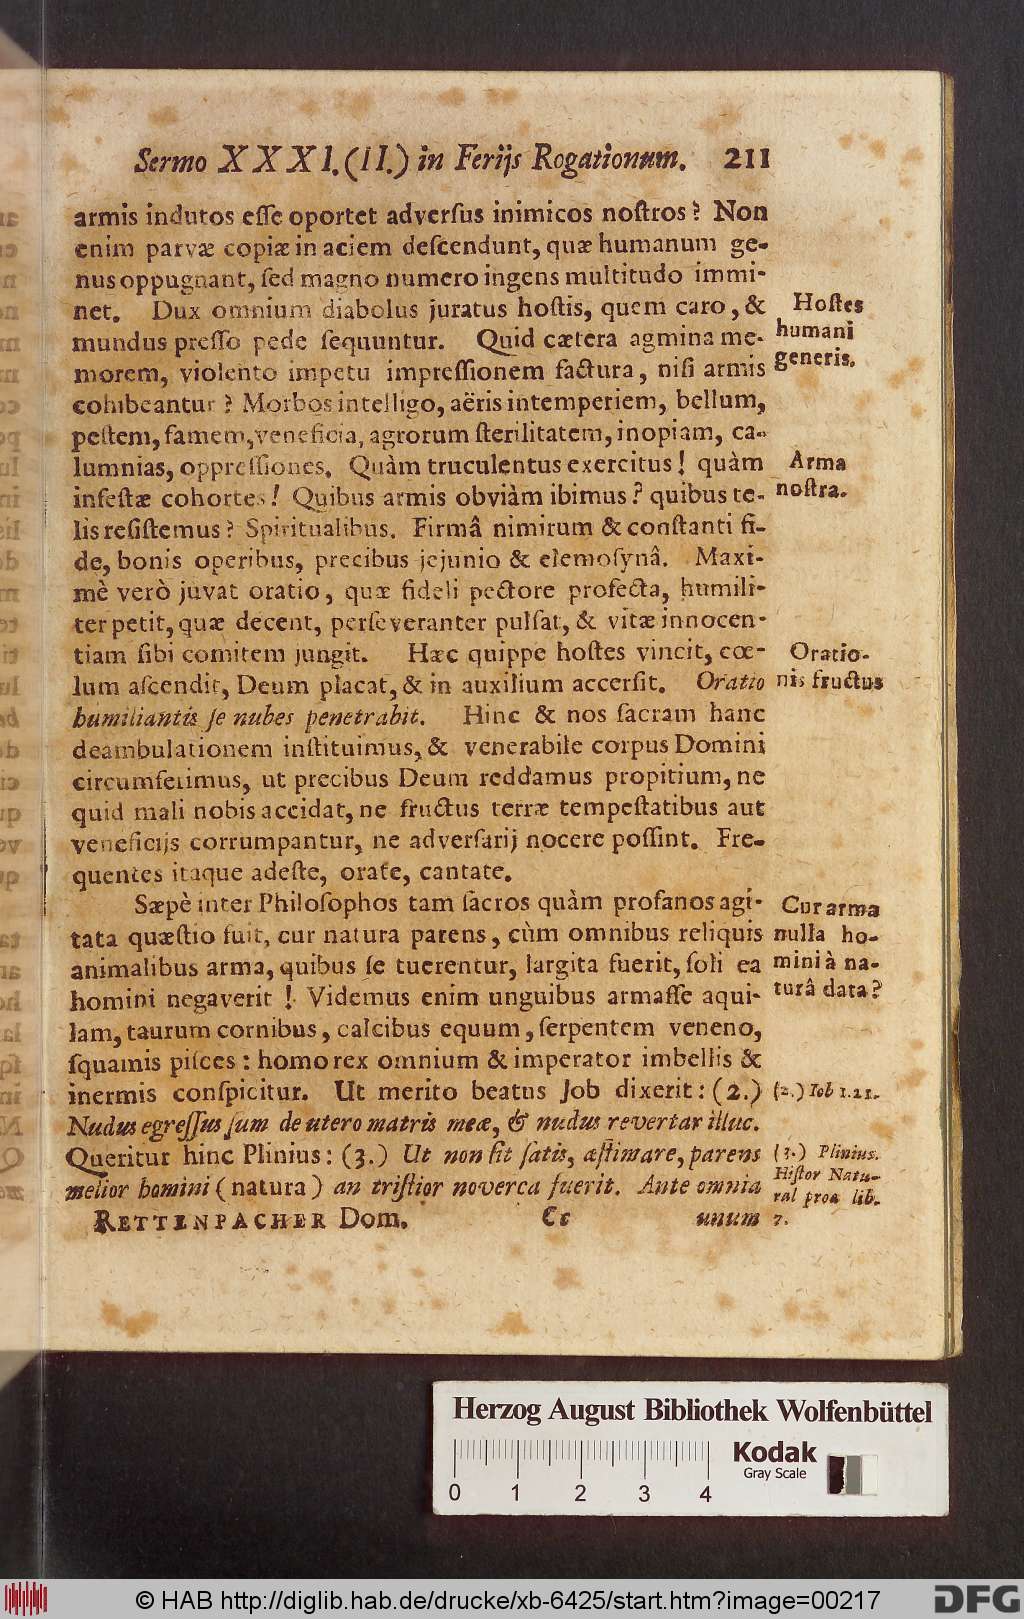 Sermo XXXI. (II.) in Ferijs Rogationum. 211
armis indutos eſſe oportet adverſus inimicos noſtros? Non
enim parvæ copiæ in aciem deſcendunt, quæ humanum ge-
nus oppugnant, ſed magno numero ingens multitudo immi-
net. Dux omnium diabolus juratus hoſtis, quem caro, &
mundus preſſo pede ſequuntur. Quid cætera agmina me-
morem, violento impetu impreſſionem factura, niſi armis
cohibeantur? Morbos intelligo, aëris intemperiem, bellum,
peſtem, famem, veneficia, agrorum ſterilitatem, inopiam, ca-
lumnias, oppreſſiones. Quàm truculentus exercitus! quàm
infeſtæ cohortes! Quibus armis obviàm ibimus? quibus te-
lis reſiſtemus? Spiritualibus. Firmâ nimirum & conſtanti fi-
de, bonis operibus, precibus jejunio & elemoſynâ. Maxi-
mè verò juvat oratio, quæ fideli pectore profecta, humili-
ter petit, quæ decent, perſeveranter pulſat, & vitæ innocen-
tiam ſibi comitem jungit. Hæc quippe hoſtes vincit, cœ-
lum aſcendit, Deum placat, & in auxilium accerſit. Oratio
humiliantis ſe nubes penetrabit. Hinc & nos ſacram hanc
deambulationem inſtituimus, & venerabile corpus Domini
circumferimus, ut precibus Deum reddamus propitium, ne
quid mali nobis accidat, ne fructus terræ tempeſtatibus aut
veneficijs corrumpantur, ne adverſarij nocere poſſint. Fre-
quentes itaque adeſte, orate, cantate.
Sæpè inter Philoſophos tam ſacros quàm profanos agi-
tata quæſtio fuit, cur natura parens, cùm omnibus reliquis
animalibus arma, quibus ſe tuerentur, largita fuerit, ſoli ea
homini negaverit! Videmus enim unguibus armaſſe aqui-
lam, taurum cornibus, calcibus equum, ſerpentem veneno,
ſquamis piſces: homo rex omnium & imperator imbellis &
inermis conſpicitur. Ut merito beatus Job dixerit: (2.)
Nudus egreſſus ſum de utero matris meæ, & nudus revertar illuc.
Queritur hinc Plinius: (3.) Ut non ſit ſatis, æſtimare, parens
melior homini (natura) an triſtior noverca fuerit. Ante omnia
RETTENPACHER Dom. Cc unum
Hoſtes
humani
generis.
Arma
noſtra.
Oratio-
nis fructus
Cur arma
nulla ho-
mini à na-
turâ data?
(2.) Iob 1.21.
(3.) Plinius.
Hiſtor Natu-
ral proæ lib.
7.
Herzog August Bibliothek Wolfenbüttel
Kodak
Gray Scale
0 1 2 3 4
© HAB http://diglib.hab.de/drucke/xb-6425/start.htm?image=00217
DFG